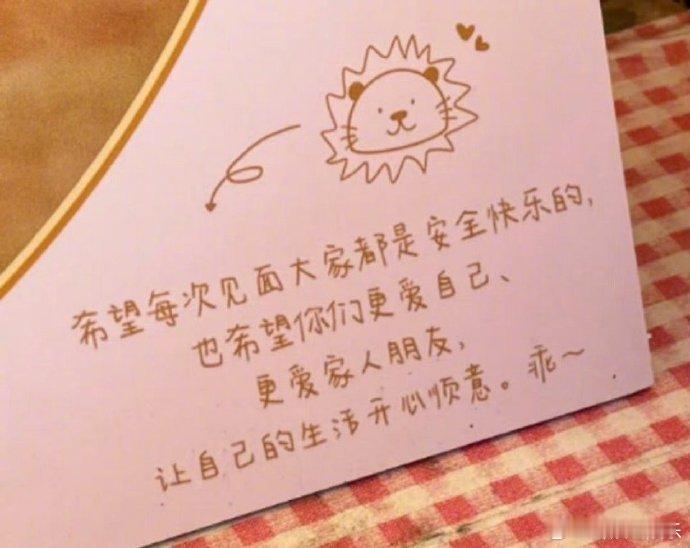 希望每次见面大家都是安全快乐的,
也希望你们更爱自己、
更爱家人朋友,
让自己的生活开心顺意。乖～